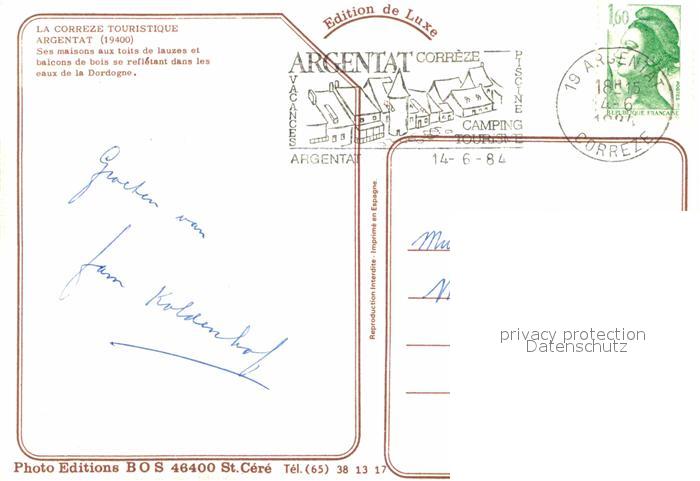 LA CORREZE TOURISTIQUE
ARGENTAT (19400)
Ses maisons aux toits de lauzes et
balcons de bois se reflétant dans les
eaux de la Dordogne.
Edition de Luxe
ARGENTAT CORRÈZE
VACANCES
PISCINE
CAMPING
TOURISME
ARGENTAT
14-6-84
19 ARGENTAT
18H15
14-6
CORREZE
1,60
POSTES
REPUBLIQUE FRANÇAISE
Groeten van
fam Koldenhof
Reproduction Interdite - Imprimé en Espagne.
privacy protection
Datenschutz
Photo Editions BOS 46400 St. Céré Tél. (65) 38 13 17